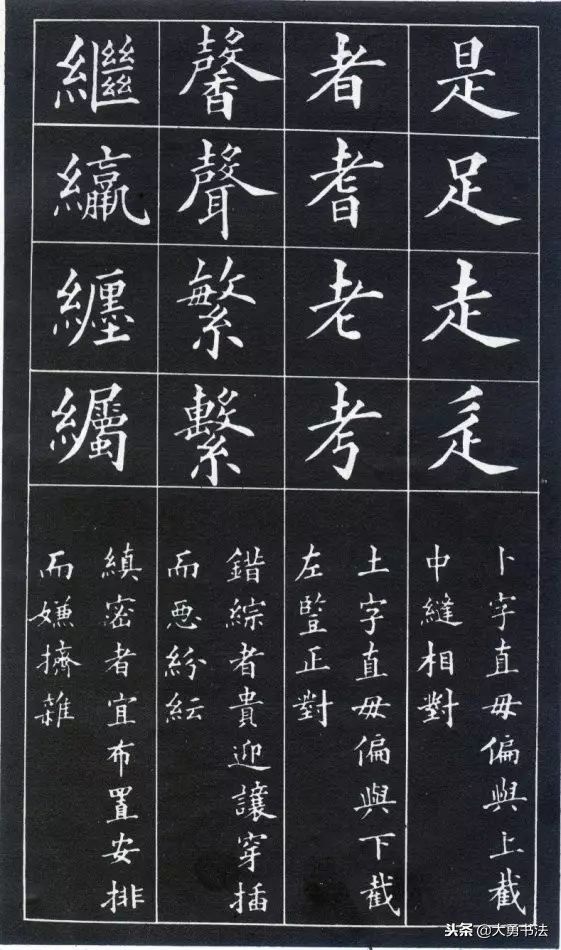 是足走辵
卜字直毋偏與上截
中縫相對
者耆老考
土字直毋偏與下截
左豎正對
馨聲繁繫
錯綜者貴迎讓穿插
而惡紛紜
繼纏
縝密者宜布置安排
而嫌擠雜
头条@大勇书法